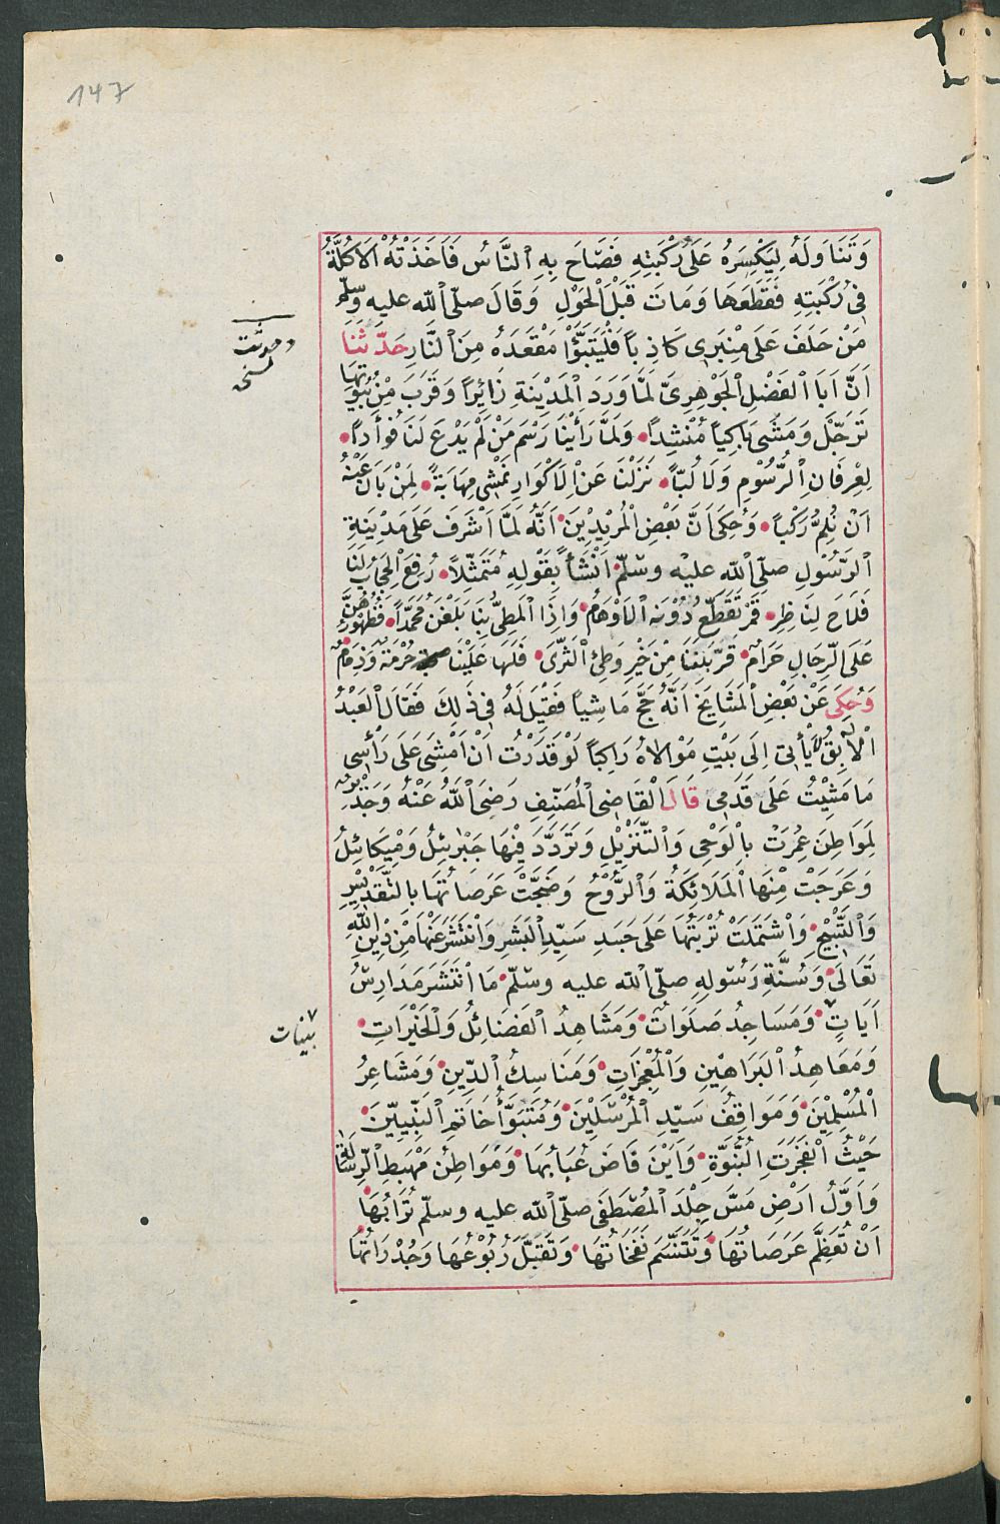 147
وَتَنَاوَلَهُ لِيَكْسِرَهُ عَلَى رُكْبَتِهِ فَصَاحَ بِهِ النَّاسُ فَاَخَذَتْهُ الْاَكِلَةُ
فِى رُكْبَتِهِ فَقَطَعَهَا وَمَاتَ قَبْلَ الْحَوْلِ وَقَالَ صلّى الله عليه وسلّم
مَنْ حَلَفَ عَلَى مِنْبَرِى كَاذِباً فَلْيَتَبَوَّؤْا مَقْعَدَهُ مِنَ النَّارِ حَدَّثَنَا
وحدثت
نسخه
اَنَّ اَبَا الْفَضْلِ الْجَوْهَرِىَّ لَمَّا وَرَدَ الْمَدِيْنَةِ زَائِرًا وَقَرَبَ مِنْ بُيُوتِهَا
تَرَجَّلَ وَمَشَى بَاكِياً مُنْشِداً • وَلَمَّا رَأَيْنَا رَسْمَ مَنْ لَمْ يَدَعْ لَنَا فُؤَاداً •
لِعِرْفَانِ الرُّسُوْمِ وَلَا لُبّاً • نَزَلْنَا عَنِ الْاَكْوَارِ نَمْشِى مَهَابَةً • لِمَنْ بَانَ عَنْهُ
اَنْ نُلِمَّ رَكْباً • وَحُكِىَ اَنَّ بَعْضِ الْمُرِيْدِيْنَ • اَنَّهُ لَمَّا اَشْرَفَ عَلَى مَدِيْنَةِ
الرَّسُوْلِ صلّى الله عليه وسلّم • اَنْشَأَ بِقَوْلِهِ مُتَمَثِّلاً • رُفِعَ الْحِجَابُ لَنَا
فَلَاحَ لِنَاظِرٍ • قَمَرٌ تَقَطَّعُ دُوْنَهُ الْاَوْهَامُ • وَاِذَا الْمَطِىُّ بِنَا بَلَغْنَ مُحَمَّداً • فَظُهُورُهُنَّ
عَلَى الرِّجَالِ حَرَامٌ • قَرَّبْنَنَا مِنْ خَيْرِ وَطِئَ الثَّرَى • فَلَهَا عَلَيْنَا حُرْمَةٌ وَذِمَامٌ
وَحُكِىَ عَنْ بَعْضِ الْمَشَايِخِ اَنَّهُ حَجَّ مَاشِياً فَقِيْلَ لَهُ فِى ذَلِكَ فَقَالَ الْعَبْدُ
الْآبِقُ لَا يَأْتِى اِلَى بَيْتِ مَوْلَاهُ رَاكِباً لَوْ قَدَرْتُ اَنْ اَمْشِىَ عَلَى رَأْسِى
مَا مَشِيْتُ عَلَى قَدَمِى قَالَ الْقَاضِى الْمُصَنِّفِ رَضِىَ اللهُ عَنْهُ وَجَدِيْرٌ
لِمَوَاطِنَ عُمِرَتْ بِالْوَحْىِ وَالتَّنْزِيْلِ وَتَرَدَّدَ فِيْهَا جَبْرَئِيْلُ وَمِيْكَائِيْلُ
وَعَرَجَتْ مِنْهَا الْمَلَائِكَةُ وَالرُّوْحُ وَضَجَّتْ عَرَصَاتُهَا بِالتَّقْدِيْسِ
وَالتَّسْبِيْحِ • وَاشْتَمَلَتْ تُرْبَتُهَا عَلَى جَسَدِ سَيِّدِ الْبَشَرِ وَانْتَشَرَ عَنْهَا مِنْ دِيْنِ اللهِ
تَعَالَى • وَسُنَّةِ رَسُوْلِهِ صلّى الله عليه وسلّم • مَا انْتَشَرَ مَدَارِسُ
اَيَاتٍ • وَمَسَاجِدُ صَلَوَاتٌ • وَمَشَاهِدُ الْفَضَائِلُ وَالْخَيْرَاتِ •
بينات
وَمَعَاهِدُ الْبَرَاهِيْنِ وَالْمُعْجِزَاتِ • وَمَنَاسِكُ الدِّيْنِ • وَمَشَاعِرُ
الْمُسْلِمِيْنَ • وَمَوَاقِفُ سَيِّدِ الْمُرْسَلِيْنَ • وَمُتَبَوَّأُ خَاتَمِ النَّبِيِّيْنَ •
حَيْثُ انْفَجَرَتِ النُّبُوَّةِ • وَاَيْنَ فَاضَ عُبَابُهَا • وَمَوَاطِنُ مَهْبِطِ الرِّسَالَةِ
وَاَوَّلُ اَرْضٍ مَسَّ جِلْدَ الْمُصْطَفَى صلّى الله عليه وسلّم تُرَابُهَا •
اَنْ تُعَظَّمَ عَرَصَاتُهَا • وَتُتَنَسَّمَ نَفَحَاتُهَا • وَتُقَبَّلَ رُبُوْعُهَا وَجُدْرَاتُهَا